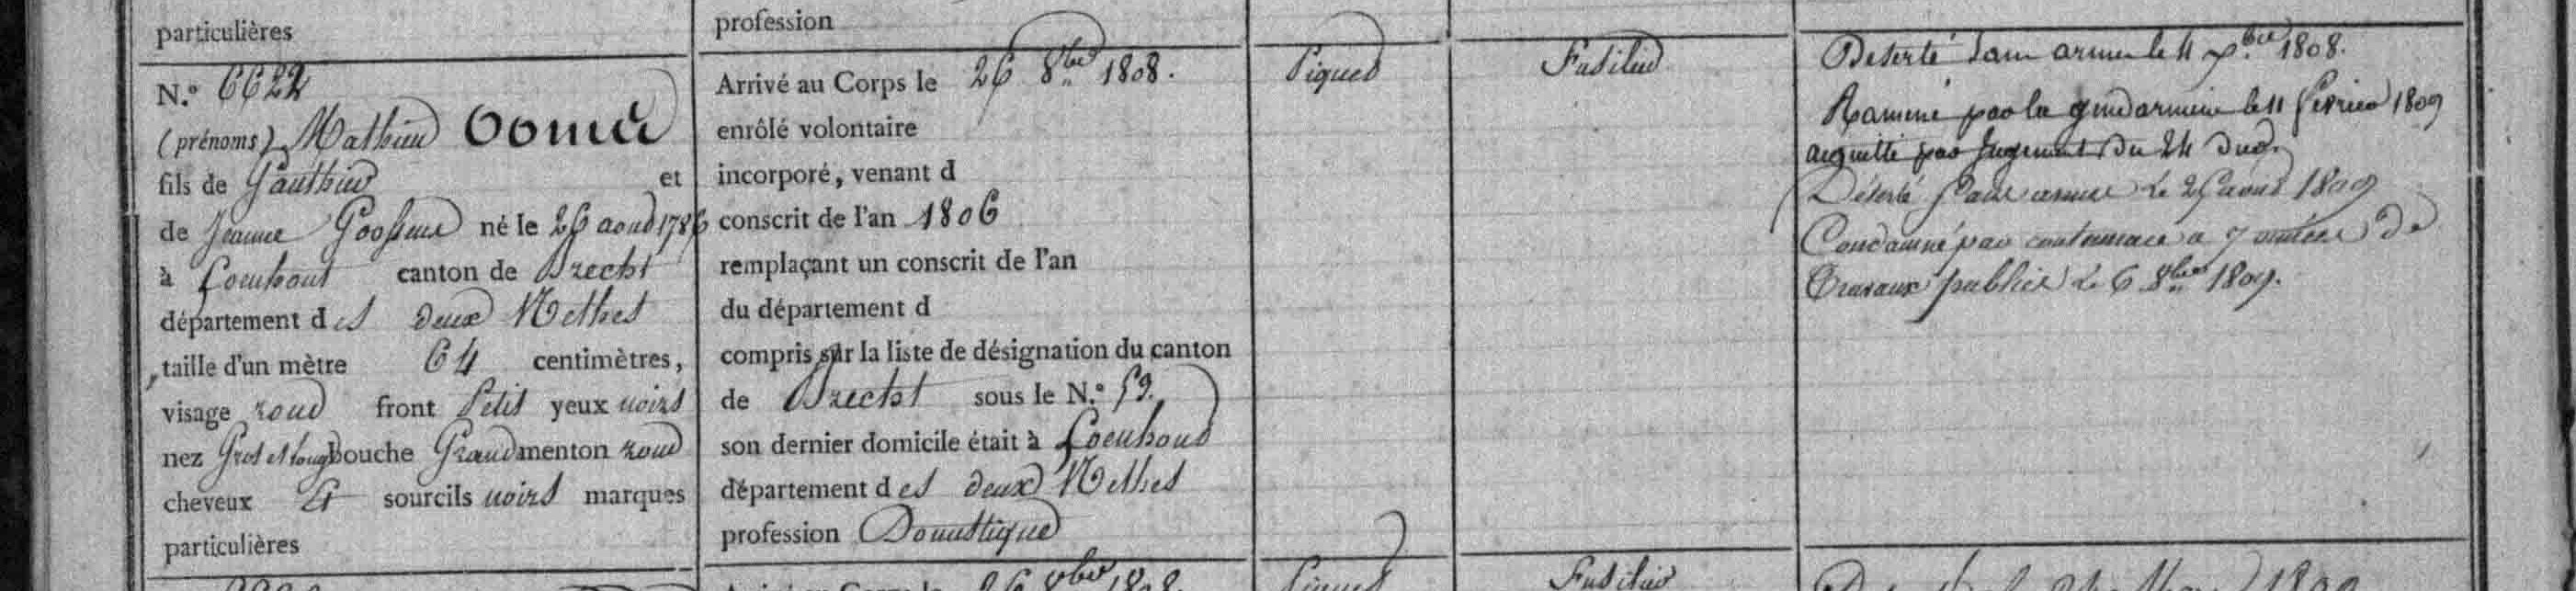 particulières
N.º 6622
(prénoms) Mathieu Oomen
fils de Gauthier et
de Jeanne Goossens né le 26 aoust 1786
à Loenhout canton de Brecht
département des deux Nethes
taille d'un mètre 64 centimètres,
visage rond front Petit yeux noirs
nez Gros et long bouche Grand menton rond
cheveux et sourcils noirs marques
particulières
profession
Arrivé au Corps le 26 8bre 1808.
enrôlé volontaire
incorporé, venant d
conscrit de l'an 1806
remplaçant un conscrit de l'an
du département d
compris sur la liste de désignation du canton
de Brecht sous le N.º 59.
son dernier domicile était à Loenhout
département des deux Nethes
profession Domestique
Piques
Fusilier
Deserté sans armes le 4 Xbre 1808.
Ramené par la gendarmerie le 11 fevrier 1809
acquitté par Jugement du 24 dud.
Déserté sans armes le 25 aout 1809
Condamné par contumace a 7 années de
travaux publics le 6 8bre 1809.
26 1808.
Piques
Fusilier